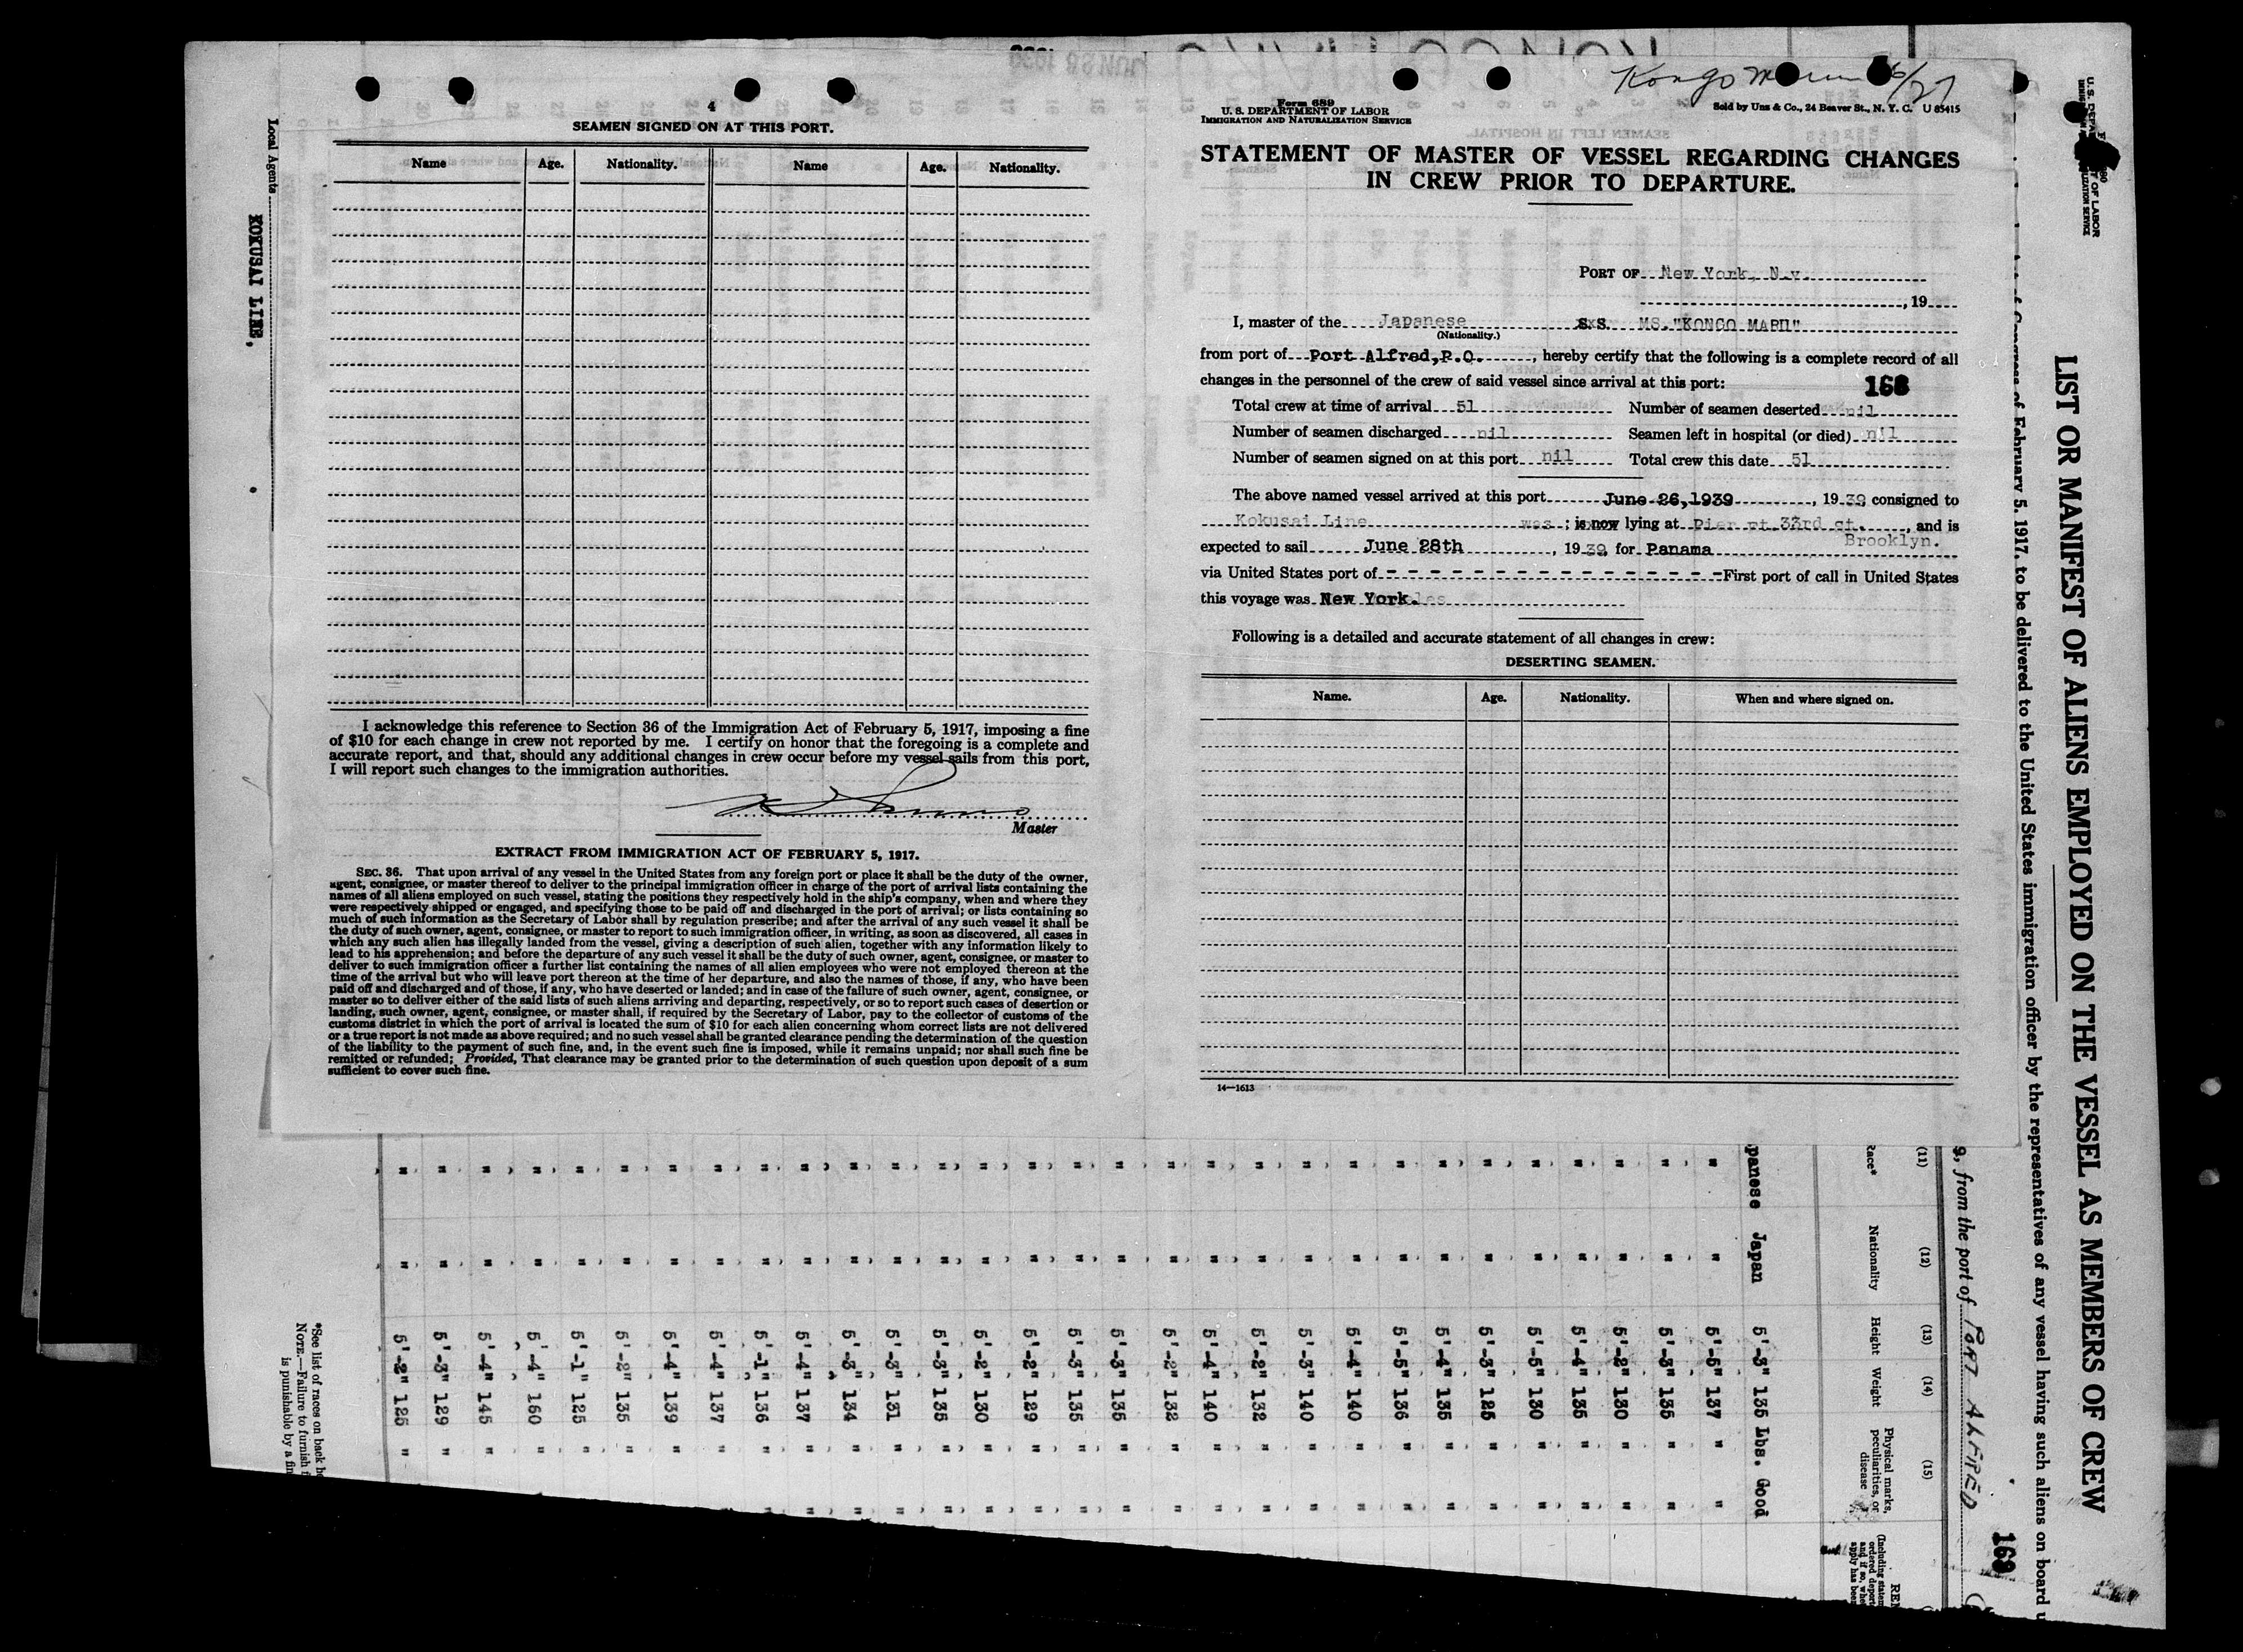 4
SEAMEN SIGNED ON AT THIS PORT.
Name Age. Nationality. Name Age. Nationality.
I acknowledge this reference to Section 36 of the Immigration Act of February 5, 1917, imposing a fine
of $10 for each change in crew not reported by me. I certify on honor that the foregoing is a complete and
accurate report, and that, should any additional changes in crew occur before my vessel sails from this port,
I will report such changes to the immigration authorities.
Master
EXTRACT FROM IMMIGRATION ACT OF FEBRUARY 5, 1917.
SEC. 36. That upon arrival of any vessel in the United States from any foreign port or place it shall be the duty of the owner,
agent, consignee, or master thereof to deliver to the principal immigration officer in charge of the port of arrival lists containing the
names of all aliens employed on such vessel, stating the positions they respectively hold in the ship's company, when and where they
were respectively shipped or engaged, and specifying those to be paid off and discharged in the port of arrival; or lists containing so
much of such information as the Secretary of Labor shall by regulation prescribe; and after the arrival of any such vessel it shall be
the duty of such owner, agent, consignee, or master to report to such immigration officer, in writing, as soon as discovered, all cases in
which any such alien has illegally landed from the vessel, giving a description of such alien, together with any information likely to
lead to his apprehension; and before the departure of any such vessel it shall be the duty of such owner, agent, consignee, or master to
deliver to such immigration officer a further list containing the names of all alien employees who were not employed thereon at the
time of the arrival but who will leave port thereon at the time of her departure, and also the names of those, if any, who have been
paid off and discharged and of those, if any, who have deserted or landed; and in case of the failure of such owner, agent, consignee, or
master so to deliver either of the said lists of such aliens arriving and departing, respectively, or so to report such cases of desertion or
landing, such owner, agent, consignee, or master shall, if required by the Secretary of Labor, pay to the collector of customs of the
customs district in which the port of arrival is located the sum of $10 for each alien concerning whom correct lists are not delivered
or a true report is not made as above required; and no such vessel shall be granted clearance pending the determination of the question
of the liability to the payment of such fine, and, in the event such fine is imposed, while it remains unpaid; nor shall such fine be
remitted or refunded; Provided, That clearance may be granted prior to the determination of such question upon deposit of a sum
sufficient to cover such fine.
Kongo Maru 6/27
Form 689
U. S. DEPARTMENT OF LABOR
IMMIGRATION AND NATURALIZATION SERVICE
Sold by Unz & Co., 24 Beaver St., N. Y. C. U 85415
STATEMENT OF MASTER OF VESSEL REGARDING CHANGES
IN CREW PRIOR TO DEPARTURE.
PORT OF New York, N.Y.
, 19
I, master of the Japanese S.S. MS. "KONGO MARU"
(Nationality.)
from port of Port Alfred, P.Q. , hereby certify that the following is a complete record of all
changes in the personnel of the crew of said vessel since arrival at this port:
168
Total crew at time of arrival 51 Number of seamen deserted nil
Number of seamen discharged nil Seamen left in hospital (or died) nil
Number of seamen signed on at this port nil Total crew this date 51
The above named vessel arrived at this port June 26,1939 , 19 39, consigned to
Kokusai Line was ; is now lying at Pier at 33rd st. , and is
Brooklyn.
expected to sail June 28th , 19 39, for Panama
via United States port of - - - - - - - - - - - - - - - - First port of call in United States
this voyage was New York.
Following is a detailed and accurate statement of all changes in crew:
DESERTING SEAMEN.
Name. Age. Nationality. When and where signed on.
14—1613
Local Agents
KOKUSAI LINE,
LIST OR MANIFEST OF ALIENS EMPLOYED ON THE VESSEL AS MEMBERS OF CREW
of February 5, 1917, to be delivered to the United States immigration officer by the representatives of any vessel having such aliens on board u
169
9, from the port of PORT ALFRED
(11) (12) (13) (14) (15)
Race* Nationality Height Weight Physical marks, peculiarities, or disease
panese Japan 5'-3" 135 Lbs. Good
" " 5'-5" 137 " "
" " 5'-3" 135 " "
" " 5'-2" 130 " "
" " 5'-4" 135 " "
" " 5'-5" 130 " "
" " 5'-3" 125 " "
" " 5'-4" 135 " "
" " 5'-5" 136 " "
" " 5'-4" 140 " "
" " 5'-3" 140 " "
" " 5'-2" 132 " "
" " 5'-4" 140 " "
" " 5'-2" 132 " "
" " 5'-3" 135 " "
" " 5'-3" 135 " "
" " 5'-2" 129 " "
" " 5'-2" 130 " "
" " 5'-3" 135 " "
" " 5'-3" 131 " "
" " 5'-3" 134 " "
" " 5'-4" 137 " "
" " 5'-1" 136 " "
" " 5'-4" 137 "
" " 5'-4" 139 "
" " 5'-2" 135 "
" " 5'-1" 125 "
" " 5'-4" 150 "
" " 5'-4" 145 "
" " 5'-3" 129 "
" " 5'-2" 125 "
*See list of races on back he
NOTE.—Failure to furnish f
is punishable by a fin